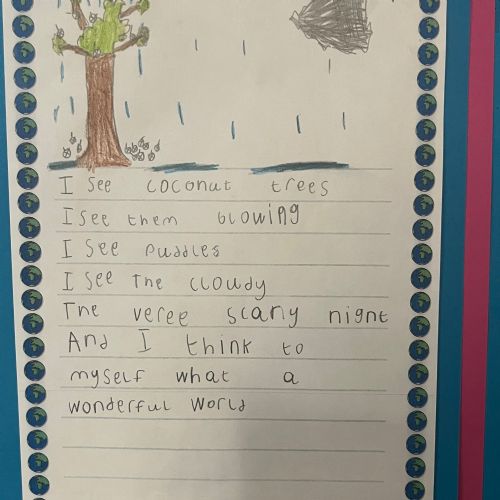 I see coconut trees
I see them blowing
I see puddles
I see the cloudy
The veree scary night
And I think to
myself what a
wonderful world